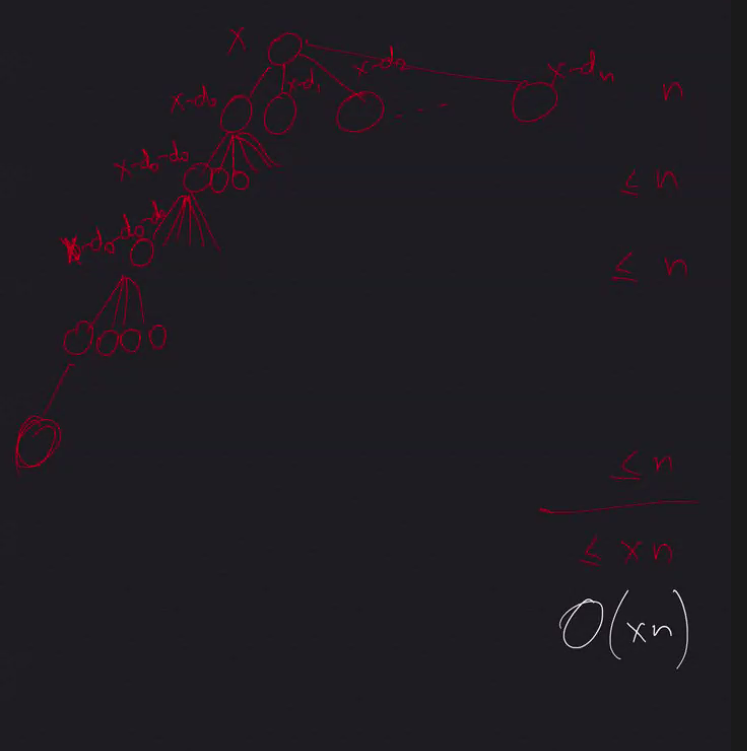 X
x-d₀ x-d₁ x-d₂ x-dₙ n
x-d₀-d₀ ≤ n
x-d₀-d₀-d₀ ≤ n
≤ n
≤ xn
O(xn)